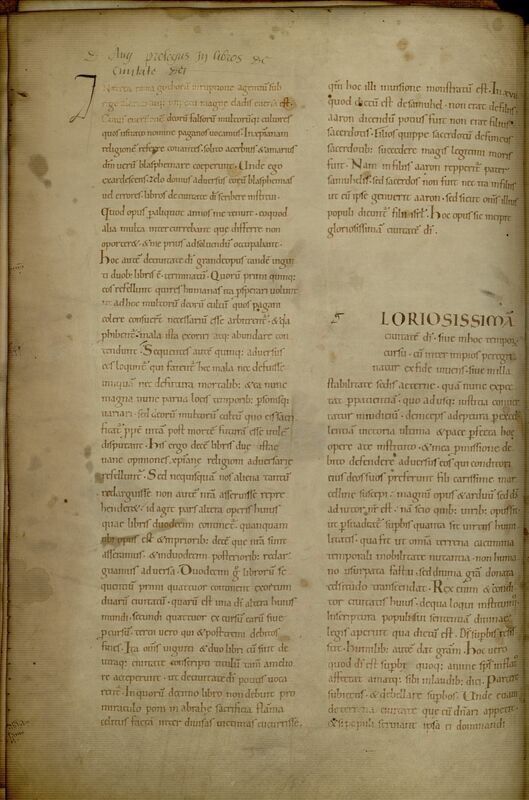 Aug prologus In libros de
ciuitate dei
Interea roma gothorū irruptione agentiū sub
rege
Cuius euersionē deorū falsorū multorūq; cultores
quos usitato nomine paganos uocamus. In xpianam
religionē referre conantes. solito acerbius & amarius
dm̄ uerū blasphemare coeperunt. Unde ego
exardescens zelo domus aduersus eorū blasphemias
uel errores. libros de ciuitate dī scribere institui.
Quod opus p aliquot annos me tenuit. eo quod
alia multa intercurrebant que differre non
oporter& & me prius ad soluendū occupabant.
hoc autē de ciuitate dī grande opus tandē uiginti
ti duob; libris ē terminatū. Quorū primi quinq;
eos refellunt qui res humanas ita psperari uolunt
ut ad hoc multorū deorū cultū quos pagani
colere consuerunt necessariū esse arbitrent. & q̄a
phibent mala ista exoriri atq; abundare con
tendunt. Sequentes autē quinq; aduersus
eos loquunt qui fatent hec mala nec defuisse
umquā nec defutura mortalib; & ea nunc
magna nunc parua locis temporib; psonisq;
uariari. sed deorū multorū cultū quo eis sacri
ficat ppt uitā post mortē futurā esse utilē
disputant. his ergo decē libris due iste
uane opiniones xpiane religioni aduersarie
refellunt. Sed ne quisquā nos aliena tantū
redarguisse non autē nr̄a asseruisse repre
henderet. id agit pars altera operis huius
quae libris duodecim continet. quanquam
ubi opus est & in priorib; decē que nr̄a sunt
asseramus. & in duodecim posteriorib; redar
guamus aduersa. Duodecim g librorū se
quentiū primi quattuor continent exortum
duarū ciuitatū. quarū est una dī altera huius
mundi. secundi quattuor excursū earū siue
pcursū. tertii uero qui & postremi debitos
fines. Ita om̄s uiginti & duo libri cū sint de
utraq; ciuitate conscripti titulū tam a meliore
re acceperunt. ut de ciuitate dī potius uoca
rent. In quorū decimo libro non debuit pro
miraculo poni in abrahe sacrificio flāma
celitus facta inter diuisas uictimas cucurrisse.
qm̄ hoc illi in uisione monstratū est. In xvii
quod dictū est de samuhel. non erat de filiis
aaron dicendū potius fuit non erat filius
sacerdotis. Filios quippe sacerdotū defunctis
sacerdotib; succedere magis legitimi moris
fuit. Nam in filiis aaron repperit pater
samuhelis. sed sacerdos non fuit nec ita in filiis
ut eū ipse genuerit aaron. sed sicut om̄s illius
populi dicunt filii isrl. hoc opus sic incipit
gloriosissimā ciuitatē dī.
LORIOSISSIMĀ
ciuitatē dī. siue in hoc tempor
cursu. cū inter impios peregri
natur ex fide uiuens. siue in illa
stabilitate sedis aeterne. quā nunc expec
tat p patientiā. quo adusq; iustitia conuer
tatur in iudiciū. deinceps adeptura p excel
lentiā uictoria ultima & pace pfecta hoc
opere a te instituto & mea pmissione de
bito defendere aduersus eos qui conditori
eius deos suos preferunt fili carissime mar
celline suscepi. magnū opus & arduū sed dī
adiutor nr̄ est. nā scio quib; uirib; opus sit
ut psuadeat supbis quanta sit uirtus humi
litatis. qua fit ut omīa terrena cacumina
temporali mobilitate nutantia. non huma
no usurpata fastu. sed diuina grā donata
celsitudo transcendat. Rex enim & condi
tor ciuitatis huius. de qua loqui instituimus
In scriptura populi sui sententiā diuinae
legis aperuit qua dictū est. Ds̄ supbis resis
tit. humilib; autē dat gratm. hoc uero
quod dī est supbe quoq; anime sps̄ inflat
affectat amatq; sibi in laudib; dici. Parcere
subiectis. & debellare supbos. Unde etiam
de terrena ciuitate que cū dnari appetit
& si populi seruiant ipsa ei dominandi